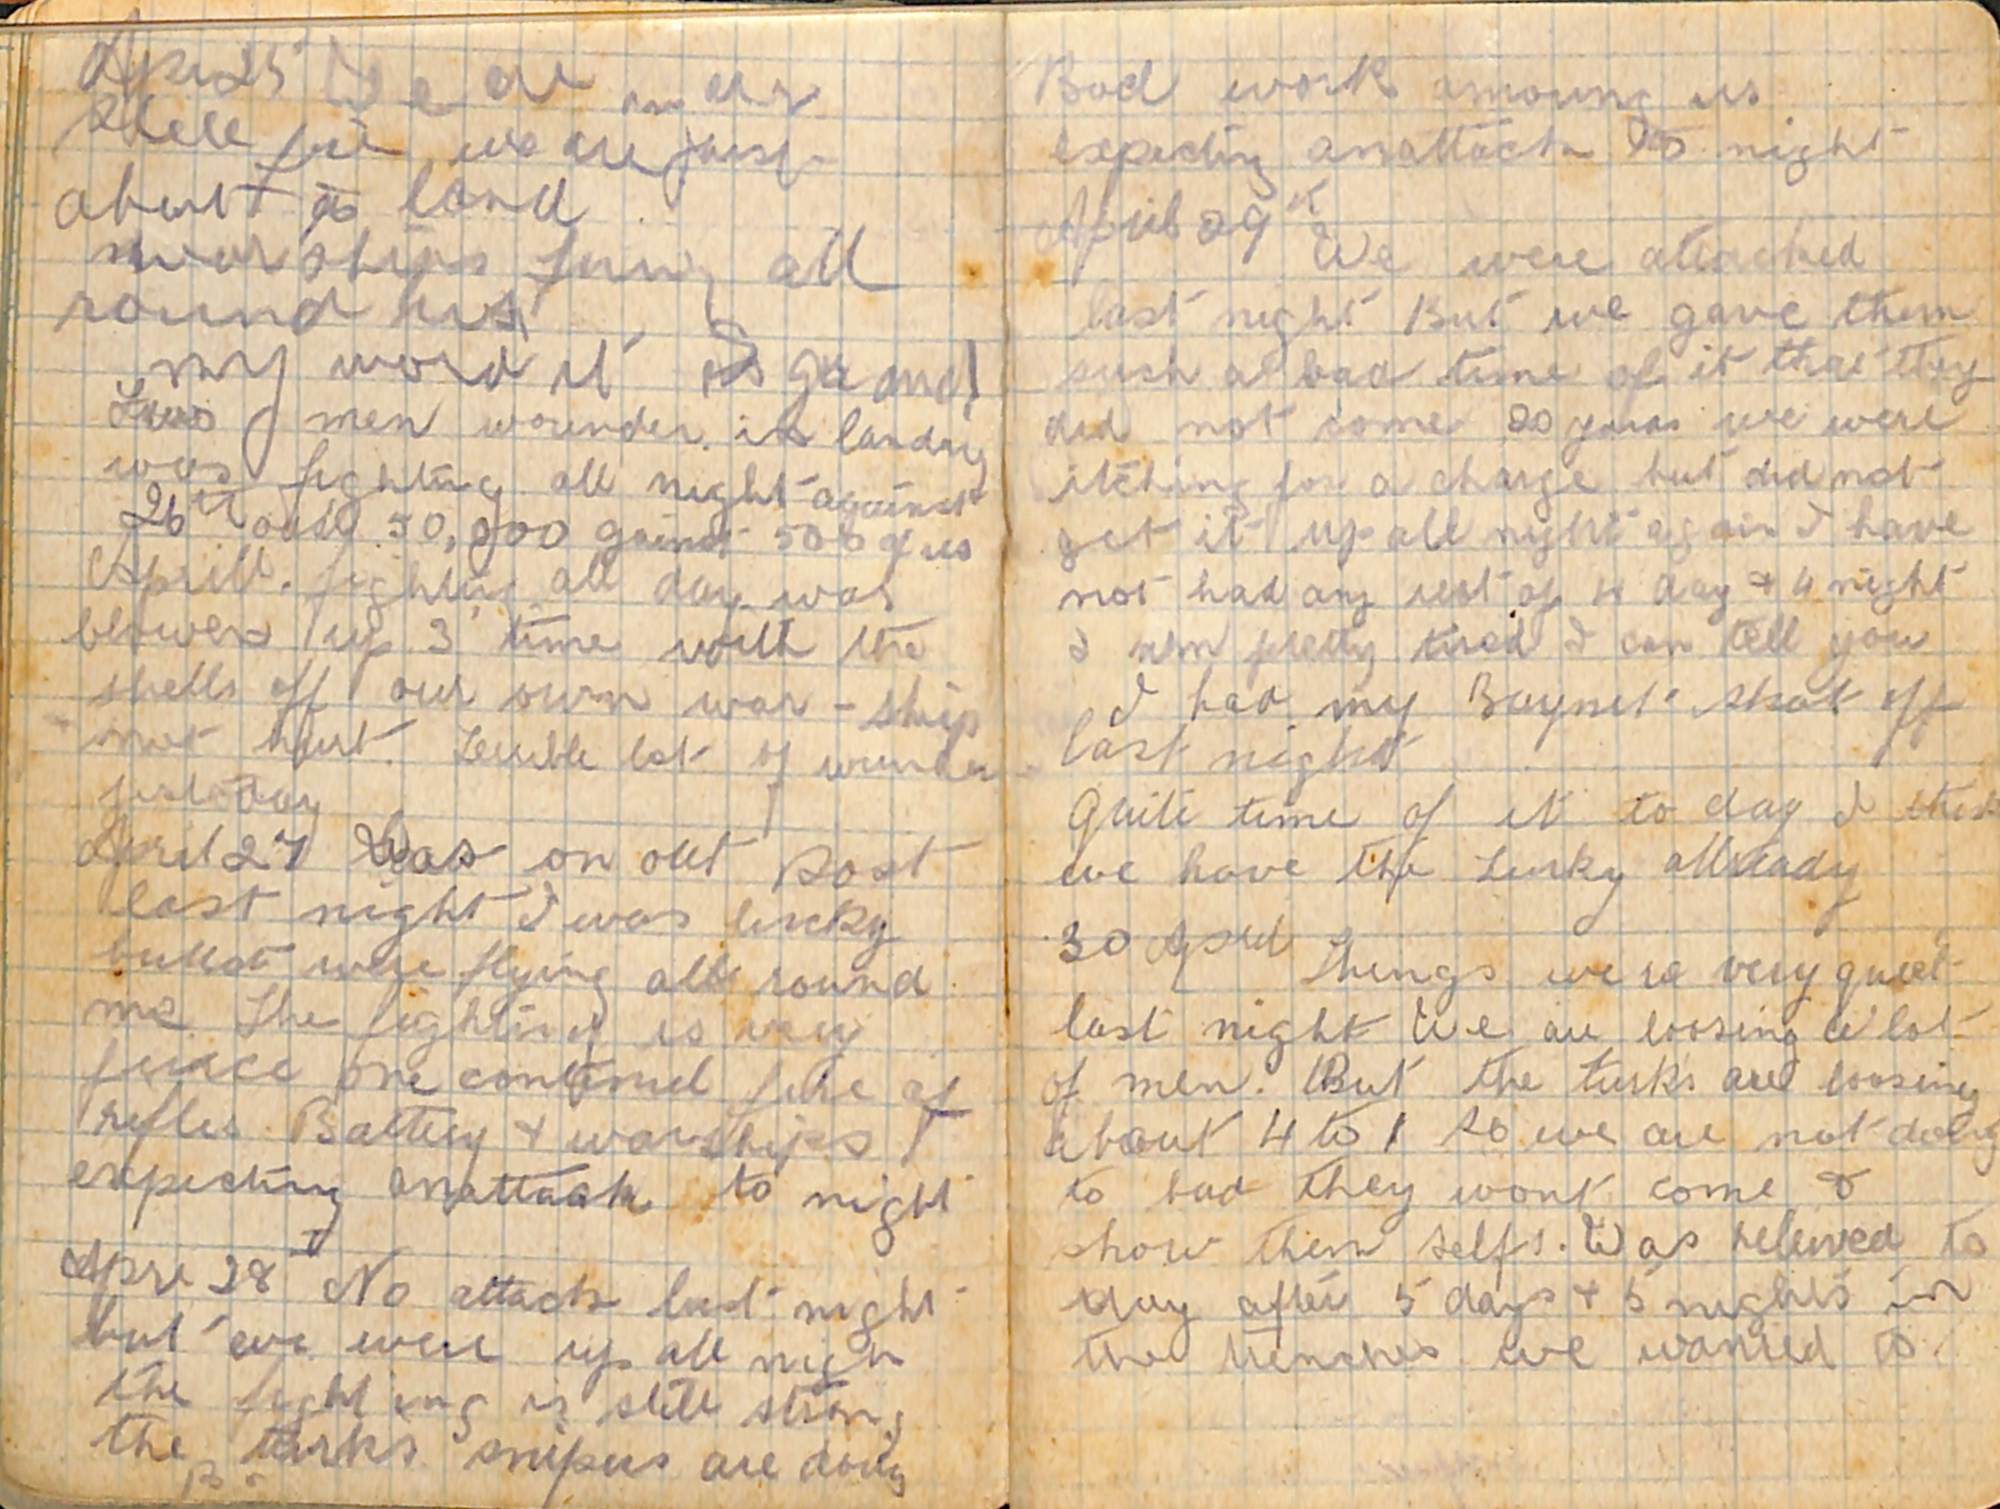 Apr 25 We are under
Shell fire we are just
about to land
warships firing all
round us
my word it is grand!
Two men wounder. in landing
was fighting all night against
26th odds 50,000 gainst 500 of us
Aprill. fighting all day was
blowen up 3 time with the
shells off our own war-ship
not hurt. Terrible lot of wounder
yestoday
April 27 Was on out Post
last night I was lucky
bullot were flying all round
me The fighting is very
feirce one contined fire of
rifles Battery & warships
expecting anattack to night
Apri 28 No attack last night
but we were up all nigh
the fighting is still strong
the turks snipers are doing
Bad work amoung us
expecting anattack to night
April 29th
We were attacked
last night But we gave them
such a bad time of it that they
did not come 20 yards we were
itching for a charge but did not
get it up all night again I have
not had any rest of 4 day & 4 night
I am pretty tired I can tell you
I had my Baynet shot off
last night
Quite time of it to day I think
we have the Turky allready
30 April Things were very quiet
last night We are loosing a lot
of men. But the turks are loosing
about 4 to 1 so we are not doing
to bad they wont come &
show them selfs. Was releived to
day after 5 days & 5 nights in
the trenches we wanted to